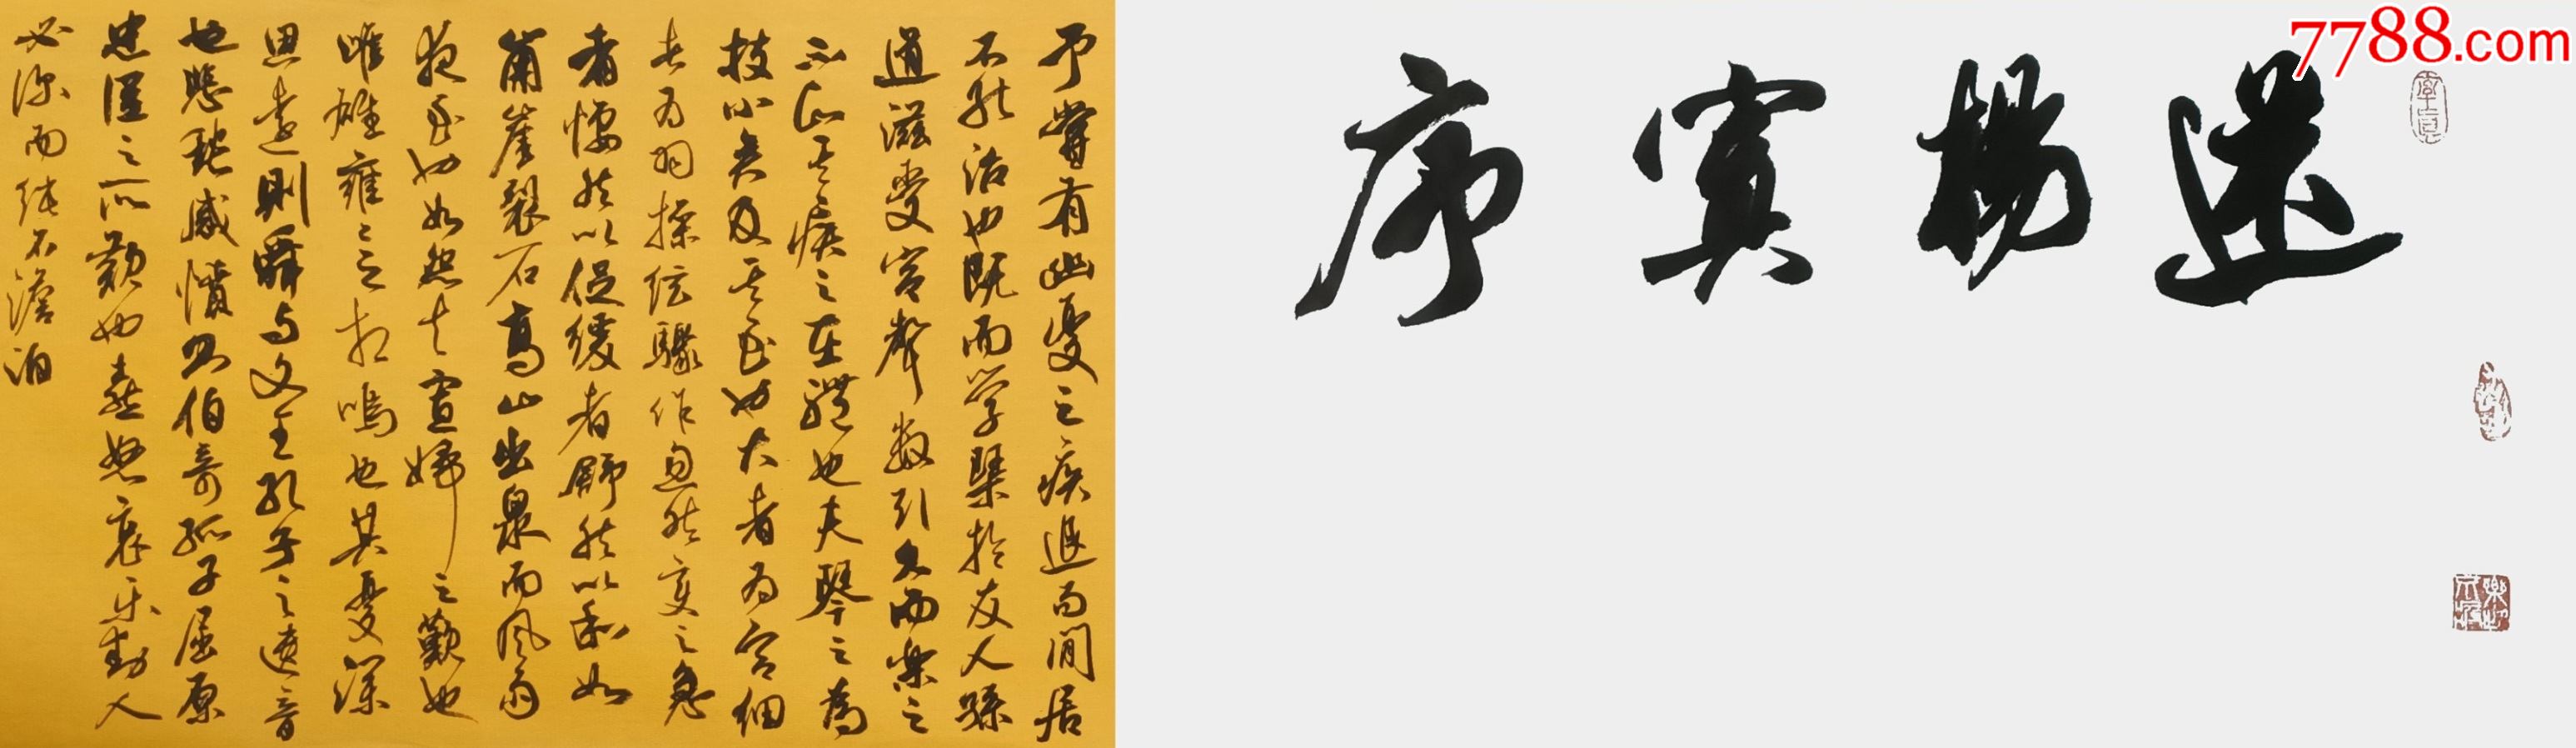 7788.com
送楊寘序
予嘗有幽憂之疾退而閒居
不能治也既而学琴於友人孫
道滋受宮聲数引久而樂之
不知其疾之在體也夫琴之為
技小矣及其至也大者为宮細
者为羽操絃驟作忽然变之急
者悽然以促緩者舒然以和如
崩崖裂石高山出泉而风雨
夜至也如怨夫寡婦之歎也
雌雄雍々之相鳴也其憂深
思遠則舜与文王孔子之遺音
也悲愁感憤則伯奇孤子屈原
忠臣之所歎也喜怒哀乐動人
必深而純古澹泊